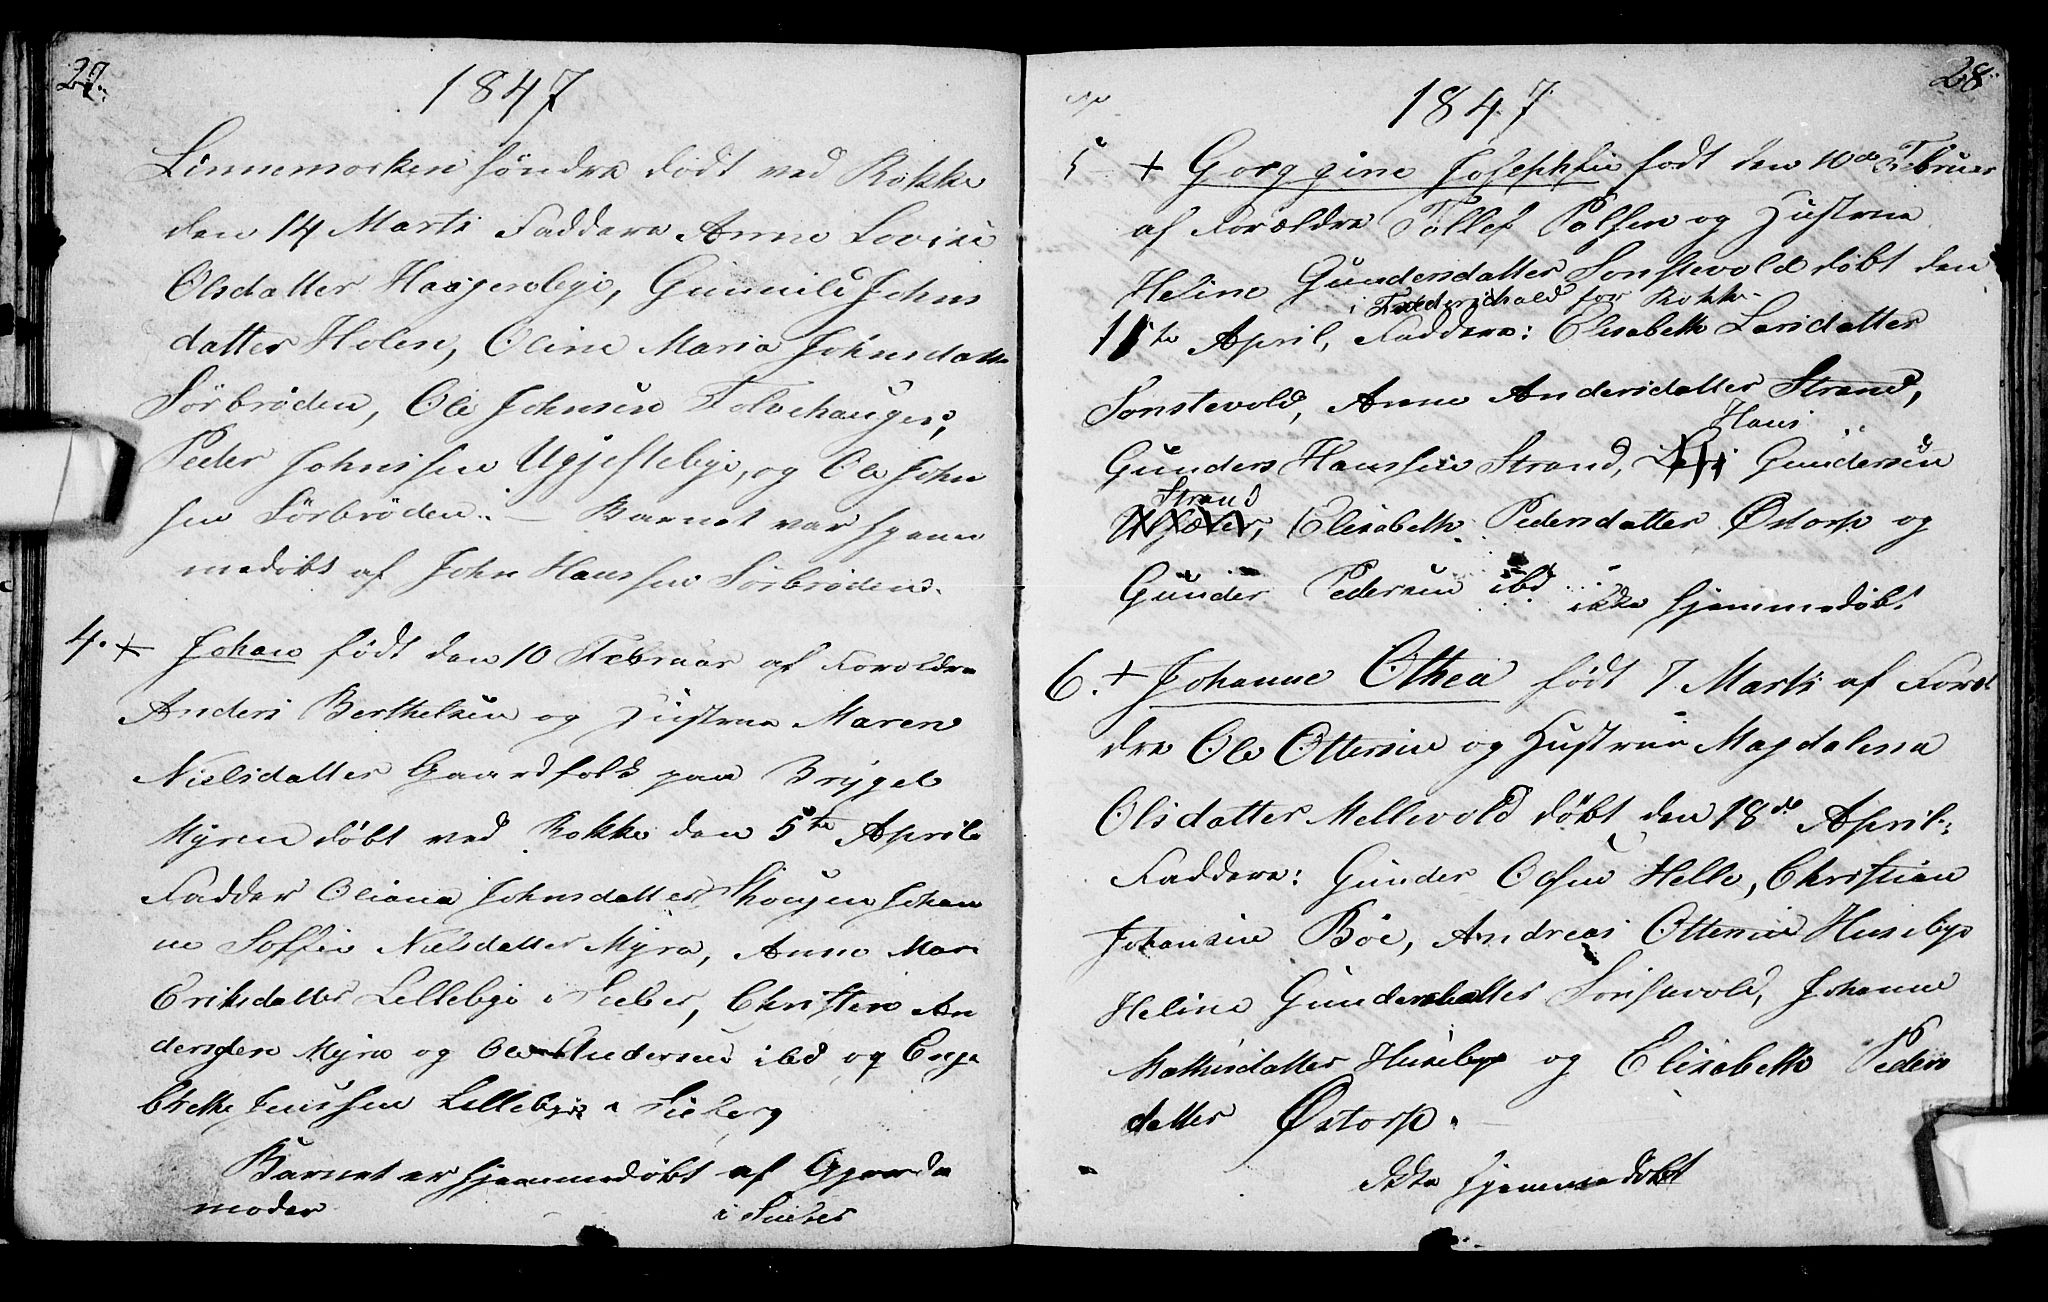 27.
1847
Linnemorken söndre Födt ved Rokke
den 14 Marts Faddere Anne Lovise
Olsdatter Haagensbye, Gunnild Johns
datter Holen, Oline Maria Johnsdatter
Sörbröden, Ole Johnsen Tolvehaugen,
Peder Johnssen Ugjestebye, og Ole John
sen Sörbröden. — Barnet var hjem
medöbt af John Hanssen Sörbröden.
4. + Johan födt den 10 Februar af Foreldre
Anders Berthelsen og Hustrue Maren
Nielsdatter Gaardfolk paa
Myren döbt ved Rokke den 5te April
Fadder Oliana Johnsdatter Johan
ne Soffie Nielsdatter Myra, Anne Mari
Eriksdatter Lillebye i, Christen An
dersen Myra og Ole Andersen ibd og Enge
brette Jenssen Lillebye i
Barnet er hjemmedöbt af Gjorde
moder
28
1847
5 + Gorggine Josephfie fodt den 10de Februar
af Forældre Tollef Polsen og Hustrue
Heline Gundersdatter Sonstevold döbt den
i Frederichald for Rokke
11te April, Faddere: Elisabeth Larsdatter
Sonstevold, Anne Andersdatter Strand,
Hans
Gunders Hanssen Strand, Gundersen
Strand
Elisabeth Pedersdatter Østorp og
Gunder Pedersen ibd ikke hjemmedöbt
6. + Johanne Othea födt 7 Marts af Foræl
dre Ole Ottersen og Hustrue Magdalena
Olsdatter Mellevold döbt den 18de April.
Faddere: Gunder Olsen Helle, Christian
Johansen Böe, Andreas Ottersen Husebye
Heline Gundersdatter Sonstevold, Johanne
Mathisdatter Husebye og Elisabeth Peders
datter Østorp.
Ikke hjemmedöbt